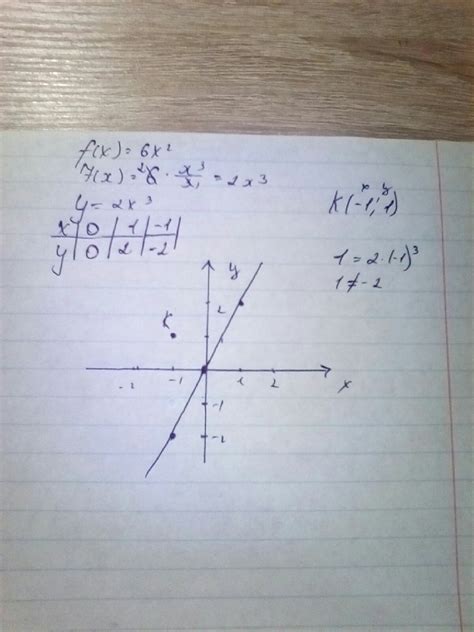 f(x) = 6x²
F(x) = ²6 · x³/3₁ = 2x³
y = 2x³
x | 0 | 1 | -1
y | 0 | 2 | -2
x y
K(-1; 1)
1 = 2·(-1)³
1 ≠ -2
y
2
K
1
-2 -1 1 2 x
-1
-2